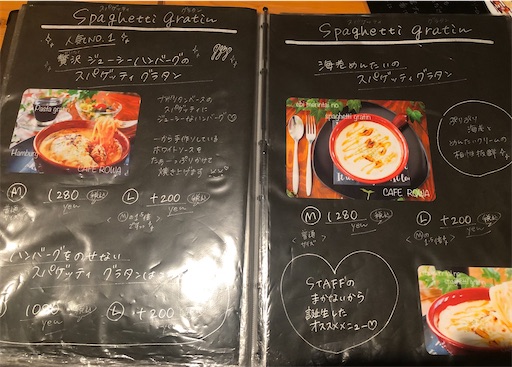 スパゲッティ グラタン
Spaghetti gratin
人気NO.1
贅沢 ジューシーハンバーグの
スパゲッティ グラタン
Pasta gratin
Hamburg
CAFE ROWA
ナポリタンベースの
スパゲッティに
ジューシーなハンバーグ♡
一から手作りしている
ホワイトソースを
たっぷりかけて
焼き上げます
M 1280 税込
yen
L +200 税込
yen
ハンバーグをのせない
スパゲッティ グラタンは
yen
L +200
yen
スパゲッティ グラタン
Spaghetti gratin
海老めんたいの
スパゲッティグラタン
ebi mentai no
spaghetti gratin
CAFE ROWA
プリプリ
海老と
めんたいクリームの
相性抜群
M 1280 税込
yen
<普通サイズ>
L +200 税込
yen
STAFFの
まかないから
誕生した
オススメメニュー♡